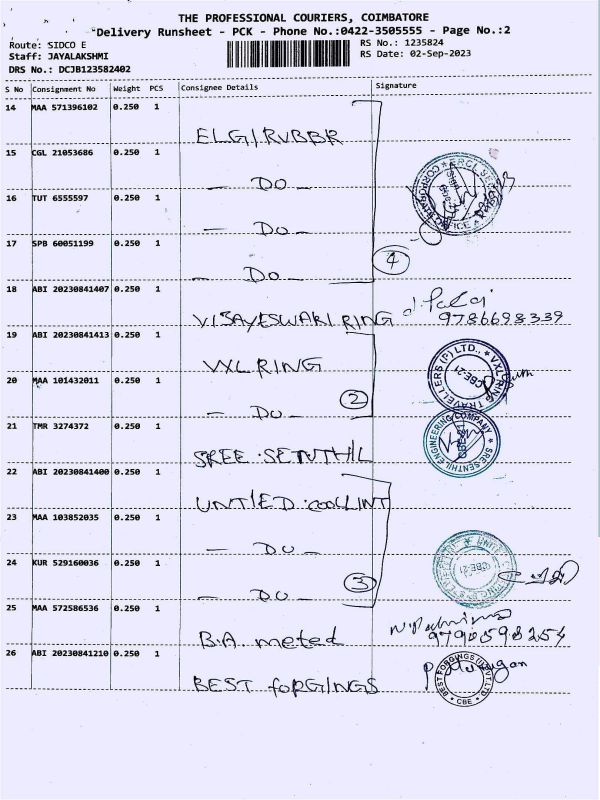 THE PROFESSIONAL COURIERS, COIMBATORE
Delivery Runsheet - PCK - Phone No.:0422-3505555 - Page No.:2
Route: SIDCO E
RS No.: 1235824
Staff: JAYALAKSHMI
RS Date: 02-Sep-2023
DRS No.: DCJB123582402
S No Consignment No Weight PCS Consignee Details Signature
14 MAA 571396102 0.250 1
ELGI RUBBR
15 CGL 21053686 0.250 1
— DO —
16 TUT 6555597 0.250 1
— DO —
17 SPB 60051199 0.250 1
— DO —
4
18 ABI 20230841407 0.250 1
VIJAYESWARI RING
9786698339
19 ABI 20230841413 0.250 1
VXL RING
VXL RING TRAVELLERS (P) LTD., CBE-21
20 MAA 101432011 0.250 1
— DO —
2
21 TMR 3274372 0.250 1
SREE . SENTHIL
SRE SENTHIL ENGINEERING COMPANY CBE-21
22 ABI 20230841400 0.250 1
UNTIED . COOLINT
23 MAA 103852035 0.250 1
— DO —
24 KUR 529160036 0.250 1
— DO —
3
CBE-21
25 MAA 572586536 0.250 1
B.A. meted
26 ABI 20230841210 0.250 1
BEST forGINGS
BEST FORGINGS (I) PVT LTD CBE